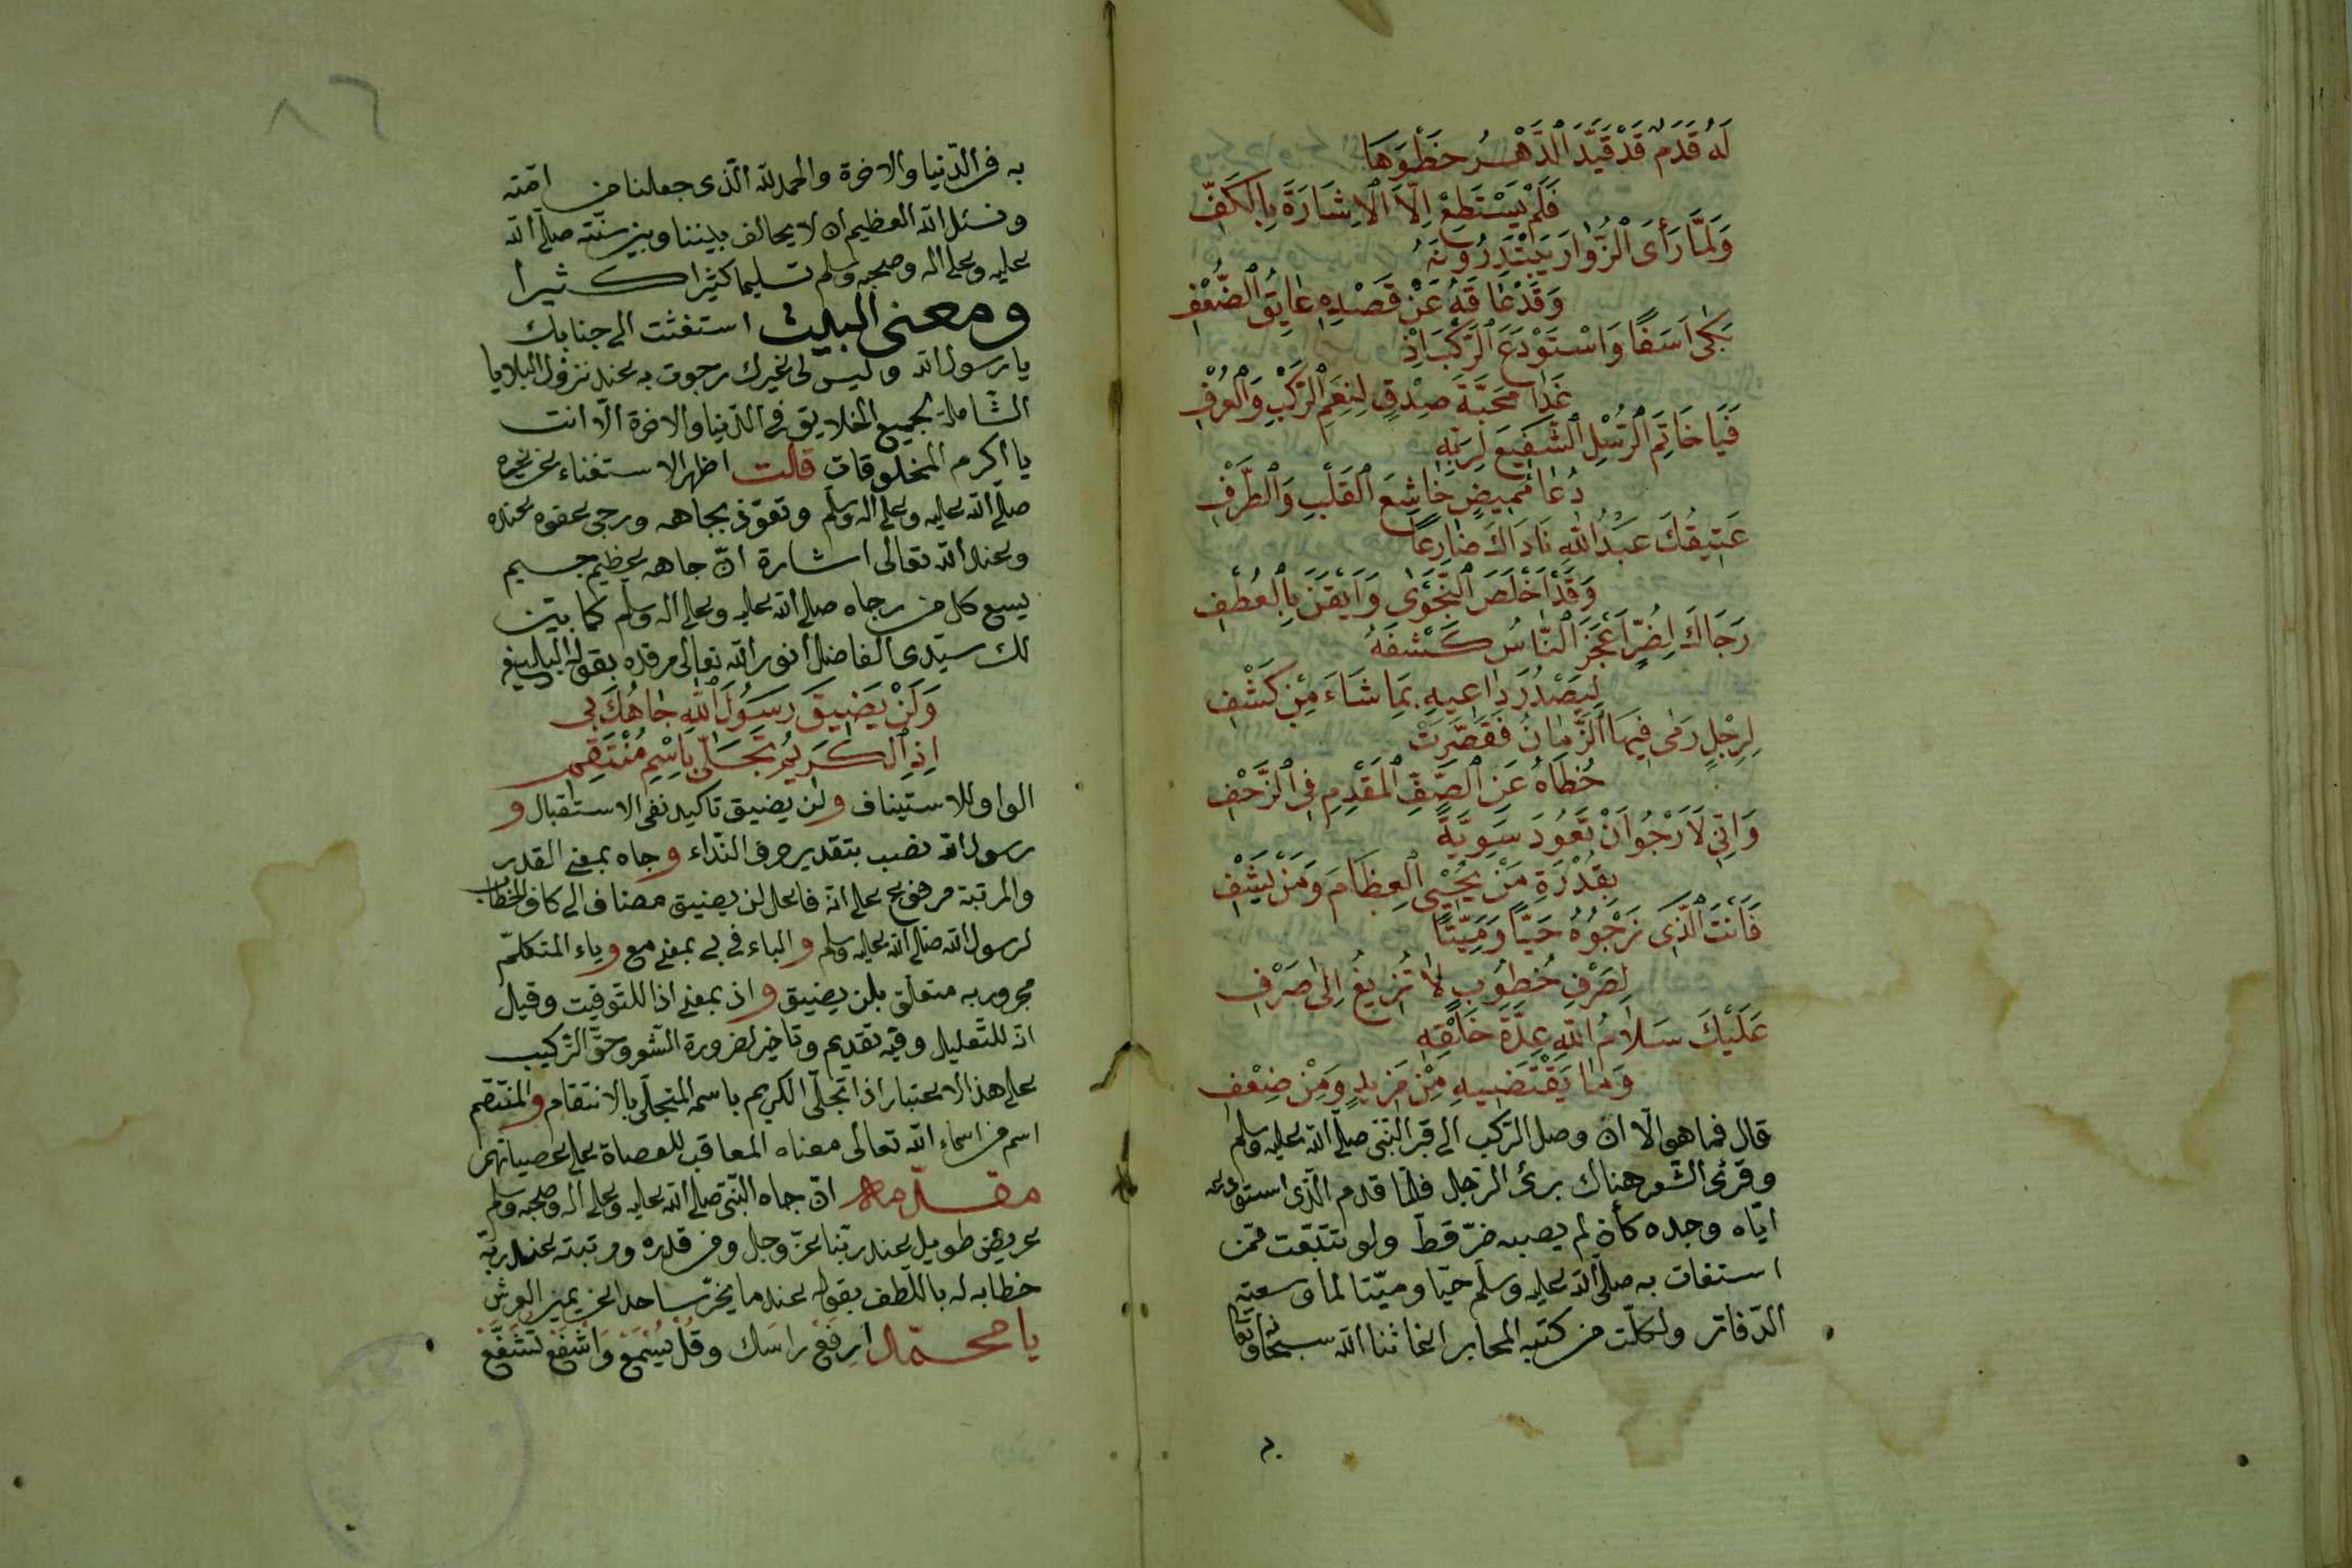 لَهُ قَدَمٌ قَدْ قَيَّدَ الدَّهْرُ خَطْوَهَا
فَلَمْ يَسْتَطِعْ اِلَّا الْاِشَارَةَ بِالْكَفِّ
وَلَمَّا رَأَى الزُّوَّارَ يَبْتَدِرُونَهُ
وَقَدْ عَاقَهُ عَنْ قَصْدِهِ عَايِقُ الضُّعْفِ
بَكَى اَسَفًا وَاسْتَوْدَعَ الرَّكْبَ اِذْ
غَدَا مَحَبَّةَ صِدْقٍ لِنِعَمِ الرَّكْبِ وَالْعُرْفِ
فَيَا خَاتِمَ الرُّسْلِ الشَّفِيعَ لِرَبِّهِ
دُعَا مَهِيضٍ خَاشِعِ الْقَلْبِ وَالطَّرْفِ
عَتِيقُكَ عَبْدُ اللهِ نَادَاكَ ضَارِعًا
وَقَدْ اَخْلَصَ النَّجْوَى وَاَيْقَنَ بِالْعُطْفِ
رَجَاكَ لِضُرٍّ اَعْجَزَ النَّاسَ كَشْفَهُ
لِيَصْدُرَ دَاعِيهِ بِمَا شَاءَ مِنْ كَشْفِ
لِرِجْلٍ رَمَى فِيهَا الزَّمَانُ فَقَصَّرَتْ
خُطَاهُ عَنِ الصَّفِّ الْمُقَدَّمِ فِي الزَّحْفِ
وَاِنِّي لَاَرْجُو اَنْ تَعُودَ سَوِيَّةً
بِقُدْرَةِ مَنْ يُحْيِي الْعِظَامَ وَمَنْ يَشْفِ
فَاَنْتَ الَّذِي نَرْجُوهُ حَيًّا وَمَيِّتًا
لِصَرْفِ خُطُوبٍ لَا تُزِيغُ اِلَى صَرْفِ
عَلَيْكَ سَلَامُ اللهِ عِدَّةَ خَلْقِهِ
وَمَا يَقْتَضِيهِ مِنْ مَزِيدٍ وَمِنْ ضِعْفِ
قال فما هو الّا ان وصل الرّكب الى قبر النّبى صلّى الله عليه وسلم
وقرئ الشّعر هناك برئ الرّجل فلمّا قدم الّذى استودعه
ايّاه وجده كأن لم يصبه ضرّ قطّ ولو تتبّعت ممّن
استغاث به صلّى الله عليه وسلّم حيّا وميّتا لما وسعته
الدّفاتر ولكلّت من كتبه المحابر اغاثنا الله سبحانه وتعالى
به فى الدّنيا والاخرة والحمد لله الّذى جعلنا من امّته
ونسئل الله العظيم ان لا يحالف بيننا وبين سنّته صلّى الله
عليه وعلى اله وصحبه وسلم تسليما كثيرا كثيرا
ومعنى البيت استغثت الى جنابك
يا رسول الله وليس لى غيرك رجوت به عند نزول البلايا
الشّاملة لجميع الخلايق فى الدّنيا والاخرة الّا انت
يا اكرم المخلوقات قلت اظهر الاستغناء عن غيره
صلّى الله عليه وعلى اله وسلّم وتعوّذ بجاهه ورجى عفوه عنده
وعند الله تعالى اشارة انّ جاهه عظيم جسيم
يسع كل من رجاه صلى الله عليه وعلى اله وسلم كما بيّن
لك سيّدى الفاضل انور الله تعالى مرقده بقوله البليغ
وَلَنْ يَضِيقَ رَسُولَ اللهِ جَاهُكَ بِى
اِذِ الْكَرِيمُ تَجَلَّى بِاسْمِ مُنْتَقِمِ
الواو للاستيناف ولن يضيق تاكيد نفى الاستقبال و
رسول الله نصب بتقدير حرف النّداء وجاه بمعنى القدر
والمرتبة مرفوع على انه فاعل لن يضيق مضاف الى كاف الخطاب
لرسول الله صلى الله عليه وسلم والباء فى بى بمعنى مع وياء المتكلّم
مجرور به متعلّق بلن يضيق واذ بمعنى اذا للتوقيت وقيل
انه للتّعليل وفيه تقديم وتاخير لضرورة الشّعر وحقّ التّركيب
على هذا الاعتبار اذا تجلّى الكريم باسمه المتجلّى بالانتقام والمنتقم
اسم من اسماء الله تعالى معناه المعاقب للعصاة على عصيانهم
مقدّمة انّ جاه النّبى صلى الله عليه وعلى اله وصحبه وسلم
عريض طويل عند ربّنا عزّ وجل ومن قدره ومرتبته عند ربّه
خطابه له باللّطف بقوله عند ما يخرّ ساجدا عن يمين العرش
يا محمّد ارفَعْ راسَك وقُلْ يُسْمَعْ وَاشْفَعْ تُشَفَّعْ